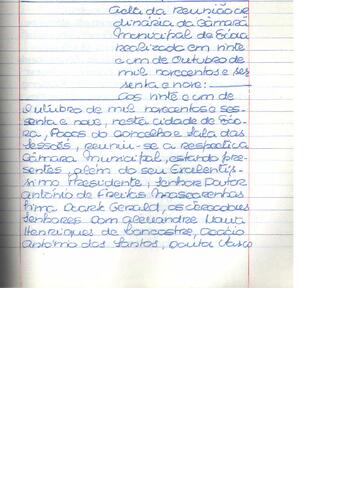 Acta da Reunião or
dinária da Câmara
Municipal de Évora
realizada em vinte
e um de Outubro de
mil novecentos e ses
senta e nove:
Aos vinte e um de
Outubro de mil novecentos e ses-
senta e nove, nesta cidade de Évo-
ra, Paços do Concelho e Sala das
Sessões, reuniu-se a respectiva
Câmara Municipal, estando pre-
sentes, além do seu Excelentís-
simo Presidente, Senhor Doutor
António de Freitas Mascarenhas
Gerald, os vereadores
Senhores Dom Alexandre
Henriques de Lancastre,
António dos Santos, Vasco